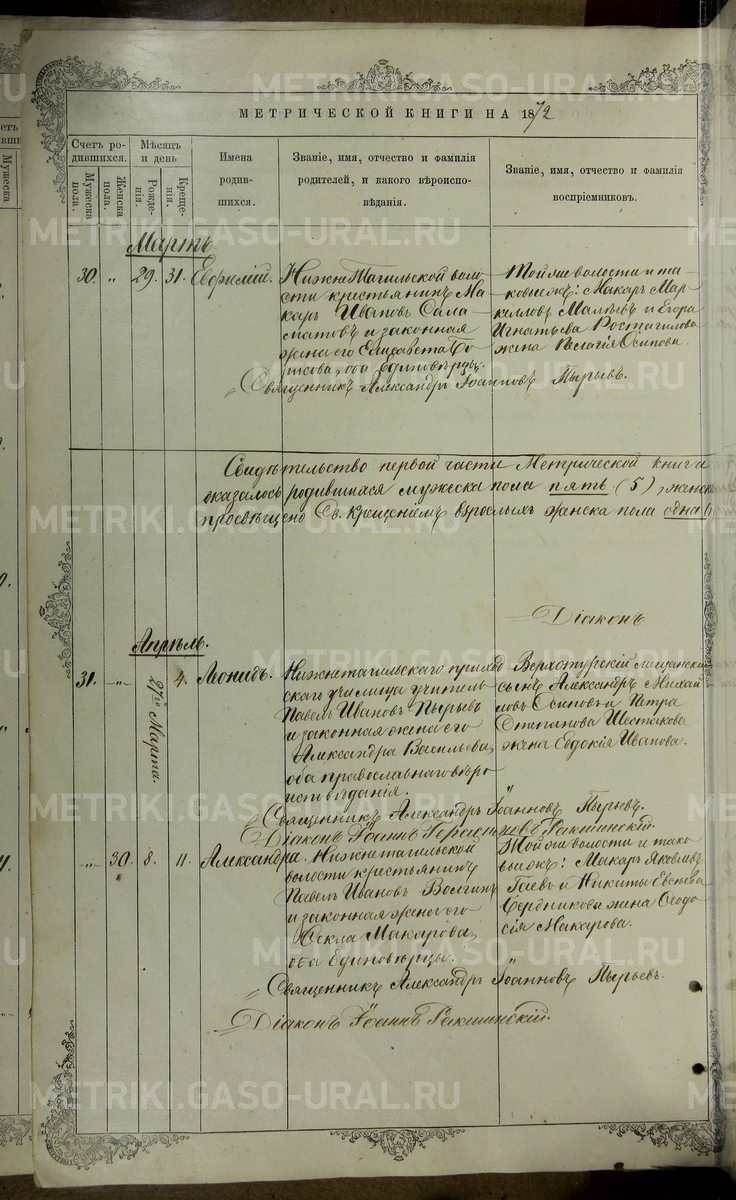 МЕТРИЧЕСКОЙ КНИГИ НА 1872
Счетъ родившихся.
Мужеска пола.
Женска пола.
Мѣсяцъ и день
Рожденія.
Крещенія.
Имена родившихся.
Званіе, имя, отчество и фамилія родителей, и какого вѣроисповѣданія.
Званіе, имя, отчество и фамилія воспріемниковъ.
Мартъ.
30. „ 29. 31. Евфимій.
НижнеТагильской воло-
сти крестьянинъ Ма-
каръ Ивановъ Сала-
матовъ и законная
жена его Елисавета Бо-
рисова, оба Единовѣрцы.
Той же волости и та-
ковыежъ: Макаръ Мар-
келловъ Малѣевъ и Егора
Игнатьева Ростагилова
жена Пелагія Осипова.
Священникъ Александръ Іоанновъ Пырьевъ.
Свидѣтельство первой части Метрической книги
оказалось родившихся мужеска пола пять (5), женск
просвѣщено Св. Крещеніемъ взрослыхъ женска пола одна (1
Діаконъ
Апрѣль.
31. „ 27го Марта. 4. Леонидъ.
Нижнетагильскаго приход-
скаго училища учитель
Павелъ Ивановъ Пырьевъ
и законная жена его
Александра Васильева,
оба православнаго вѣро
исповѣданія.
Верхотурскій мещанскій
сынъ Александръ Михай
ловъ Осиповъ и Петра
Степанова Шестакова
жена Евдокія Иванова.
Священникъ Александръ Іоанновъ Пырьевъ.
Діаконъ Іоаннъ Ракшинскій.
„ 30. 8. 11. Александра.
Нижнетагильской
волости крестьянинъ
Павелъ Ивановъ Волгинъ
и законная жена его
Ѳекла Макарова,
оба Единовѣрцы.
Той же волости и тако
выежъ: Макаръ Яковлевъ
Гаевъ и Никиты Евсѣева
Сердникова жена Ѳеодо
сія Макарова.
Священникъ Александръ Іоанновъ Пырьевъ.
Діаконъ Іоаннъ Ракшинскій.
METRIKI.GASO-URAL.RU